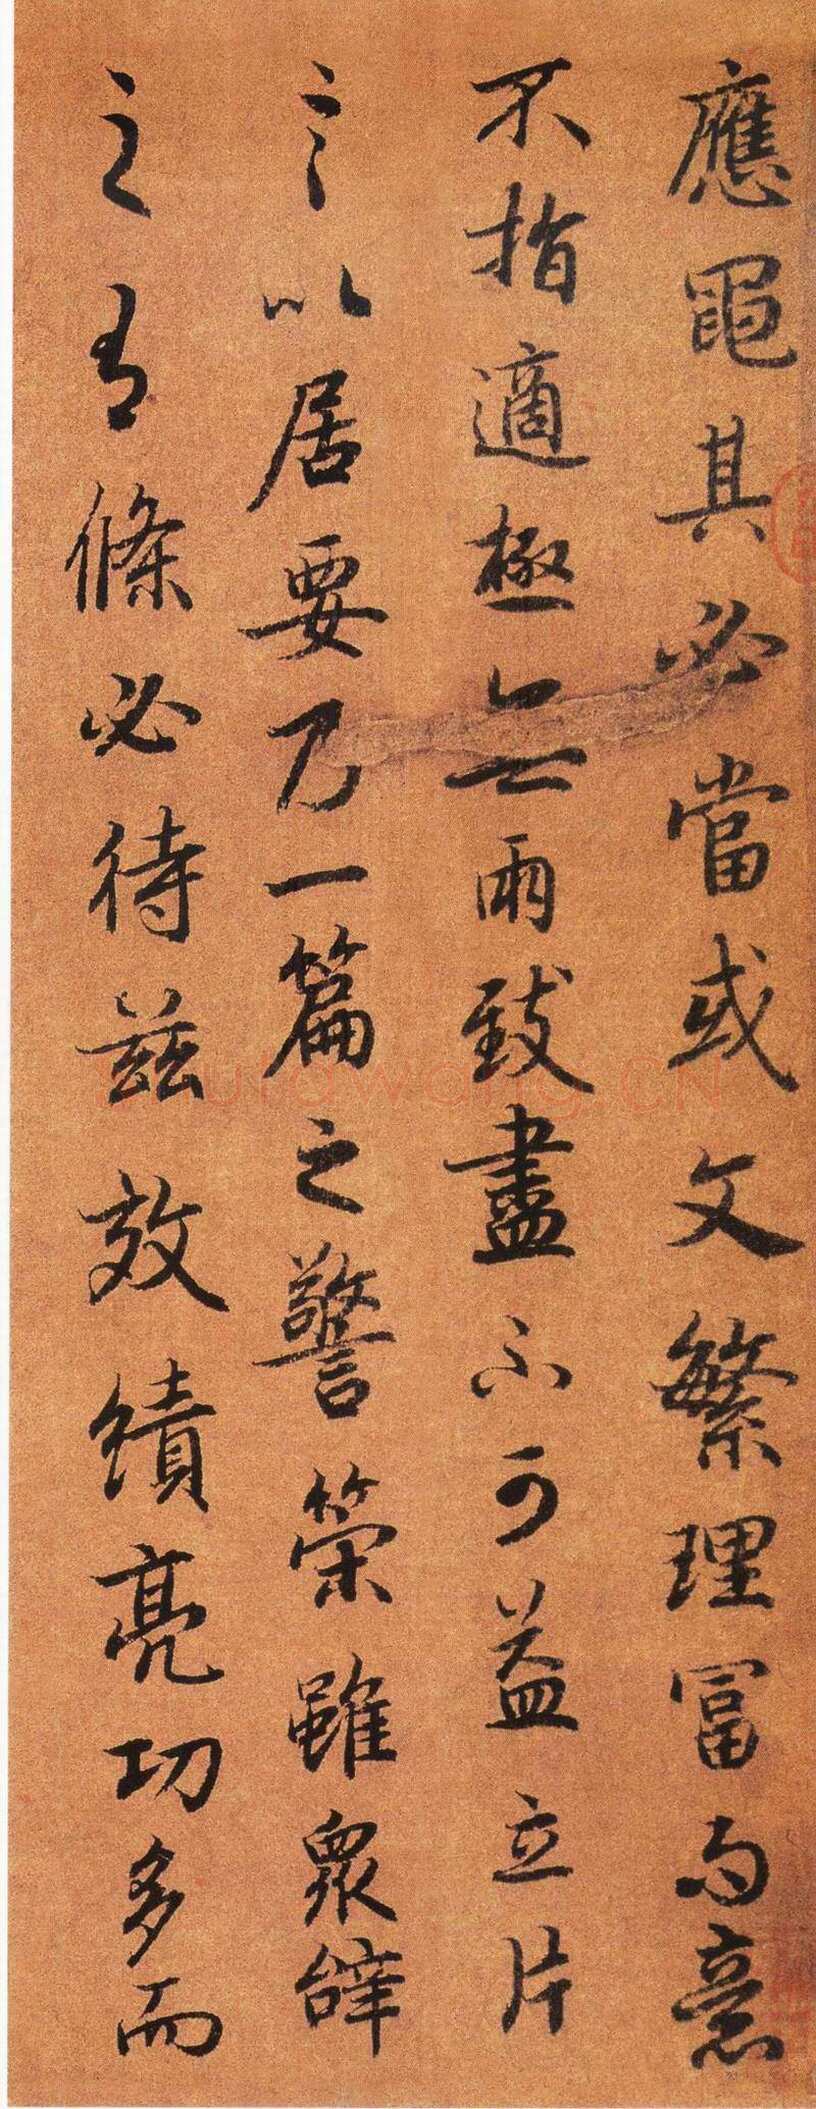 應黽其必當或文繁理冨而意
不指適極無兩致盡不可益立片
言以居要乃一篇之警策雖眾辭
之有條必待茲效績亮功多而
shufawang.CN